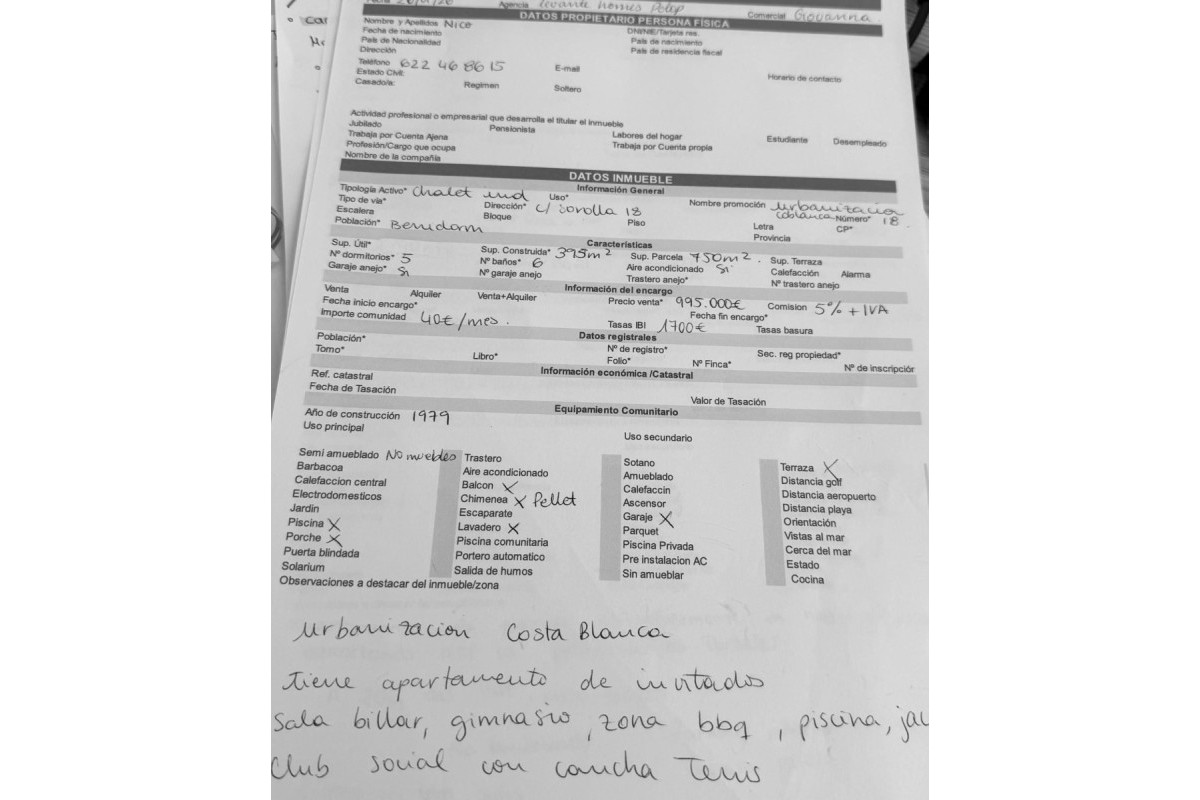 Agencia Levante homes Polop Comercial Giovanna
DATOS PROPIETARIO PERSONA FÍSICA
Nombre y Apellidos Nico DNI/NIE/Tarjeta res.
Fecha de nacimiento País de nacimiento
País de Nacionalidad País de residencia fiscal
Dirección
Teléfono 622 46 86 15 E-mail Horario de contacto
Estado Civil:
Casado/a: Regimen Soltero
Actividad profesional o empresarial que desarrolla el titular el inmueble
Jubilado Pensionista Labores del hogar Estudiante Desempleado
Trabaja por Cuenta Ajena Trabaja por Cuenta propia
Profesión/Cargo que ocupa
Nombre de la compañia
DATOS INMUEBLE
Información General
Tipología Activo* Chalet ind Uso* Nombre promoción urbanizacion
Tipo de vía* Dirección* c/ sorolla 18 coblanca Número* 18
Escalera Bloque Piso Letra CP*
Población* Benidorm Provincia
Características
Sup. Útil* Sup. Construida* 395m² Sup. Parcela 750m². Sup. Terraza
Nº dormitorios* 5 Nº baños* 6 Aire acondicionado Si Calefacción Alarma
Garaje anejo* Si Nº garaje anejo Trastero anejo* Nº trastero anejo
Información del encargo
Venta Alquiler Venta+Alquiler Precio venta* 995.000€ Comision 5% + IVA
Fecha inicio encargo* Fecha fin encargo*
Importe comunidad 40€/mes. Tasas IBI 1700€ Tasas basura
Datos registrales
Población* Nº de registro* Sec. reg propiedad*
Tomo* Libro* Folio* Nº Finca* Nº de inscripción
Información económica /Catastral
Ref. catastral
Fecha de Tasación Valor de Tasación
Equipamiento Comunitario
Año de construcción 1979
Uso principal Uso secundario
Semi amueblado No muebles Trastero Sotano Terraza X
Barbacoa Aire acondicionado Amueblado Distancia golf
Calefaccion central Balcon X Calefaccin Distancia aeropuerto
Electrodomesticos Chimenea X Pellet Ascensor Distancia playa
Jardin Escaparate Garaje X Orientación
Piscina X Lavadero X Parquet Vistas al mar
Porche X Piscina comunitaria Piscina Privada Cerca del mar
Puerta blindada Portero automatico Pre instalacion AC Estado
Solarium Salida de humos Sin amueblar Cocina
Observaciones a destacar del inmueble/zona
urbanizacion Costa Blanca
tiene apartamento de invitados
sala billar, gimnasio, zona bbq, piscina, jac
Club social con cancha Tenis